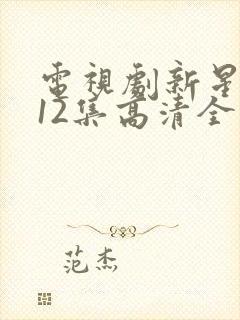 電視劇新星
12集高清全
范杰